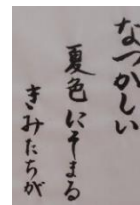 なつかしい
夏色にそまる
きみたちが